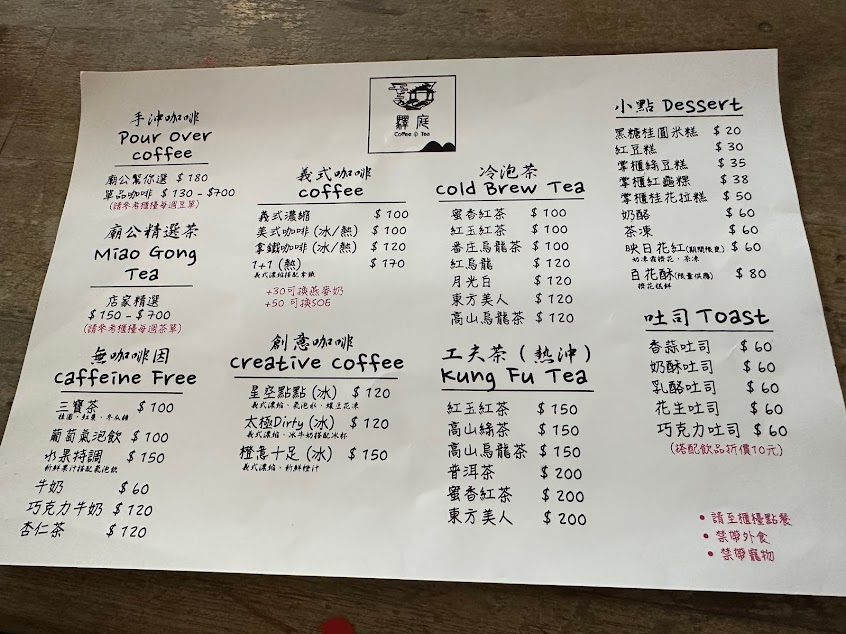 驛庭
Coffee @ Tea
手沖咖啡
Pour over
coffee
廟公幫你選 $ 180
單品咖啡 $ 130 - $700
(請參考櫃檯每週豆單)
廟公精選茶
Miao Gong
Tea
店家精選
$ 150 - $ 700
(請參考櫃檯每週茶單)
無咖啡因
Caffeine Free
三寶茶 $ 100
桂圓、紅棗、冬瓜糖
葡萄氣泡飲 $ 100
水果特調 $ 150
新鮮果汁搭配氣泡飲
牛奶 $ 60
巧克力牛奶 $ 120
杏仁茶 $ 120
義式咖啡
coffee
義式濃縮 $ 100
美式咖啡 (冰/熱) $ 100
拿鐵咖啡 (冰/熱) $ 120
1+1 (熱) $ 170
義式濃縮搭配拿鐵
+30可換燕麥奶
+50 可換SOE
創意咖啡
Creative Coffee
星空點點 (冰) $ 120
義式濃縮、氣泡水、蝶豆花凍
太極Dirty (冰) $ 120
義式濃縮、冰牛奶搭配冰杯
橙意十足 (冰) $ 150
義式濃縮、新鮮橙汁
冷泡茶
Cold Brew Tea
蜜香紅茶 $ 100
紅玉紅茶 $ 100
番庄烏龍茶 $ 100
紅烏龍 $ 120
月光白 $ 120
東方美人 $ 120
高山烏龍茶 $ 120
工夫茶 ( 熱沖 )
Kung Fu Tea
紅玉紅茶 $ 150
高山綠茶 $ 150
高山烏龍茶 $ 150
普洱茶 $ 200
蜜香紅茶 $ 200
東方美人 $ 200
小點 Dessert
黑糖桂圓米糕 $ 20
紅豆糕 $ 30
掌櫃綠豆糕 $ 35
掌櫃紅龜粿 $ 38
掌櫃桂花拉糕 $ 50
奶酪 $ 60
茶凍 $ 60
映日花紅(期間限定) $ 60
奶凍霜橙花、茶凍
百花酥(限量供應) $ 80
橙花糕餅
吐司 Toast
香蒜吐司 $ 60
奶酥吐司 $ 60
乳酪吐司 $ 60
花生吐司 $ 60
巧克力吐司 $ 60
(搭配飲品折價10元)
• 請至櫃檯點餐
• 禁帶外食
• 禁帶寵物